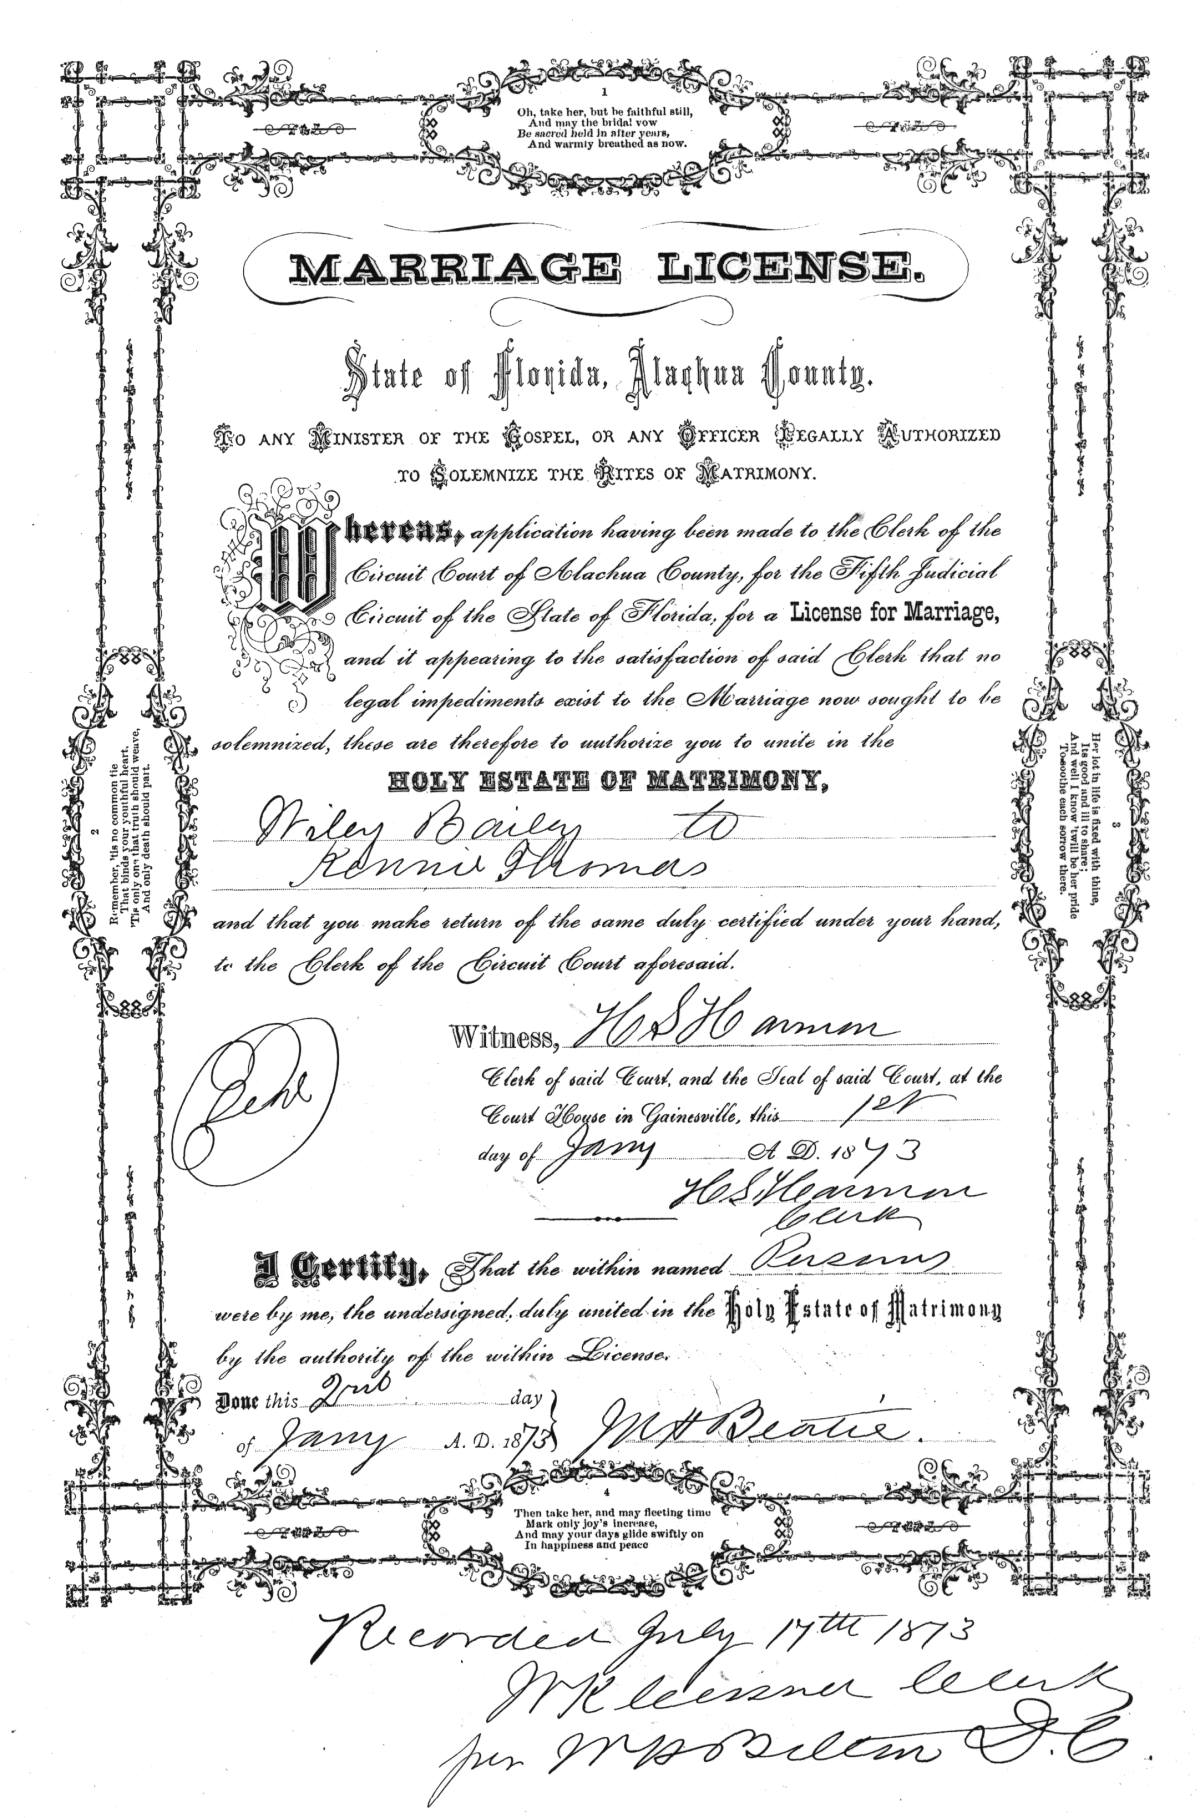 1
Oh, take her, but be faithful still,
And may the bridal vow
Be sacred held in after years,
And warmly breathed as now.
MARRIAGE LICENSE.
State of Florida, Alachua County.
TO ANY MINISTER OF THE GOSPEL, OR ANY OFFICER LEGALLY AUTHORIZED
TO SOLEMNIZE THE RITES OF MATRIMONY.
Whereas, application having been made to the Clerk of the
Circuit Court of Alachua County, for the Fifth Judicial
Circuit of the State of Florida, for a License for Marriage,
and it appearing to the satisfaction of said Clerk that no
legal impediments exist to the Marriage now sought to be
solemnized, these are therefore to authorize you to unite in the
HOLY ESTATE OF MATRIMONY,
Wiley Bailey to
Rennie Thomas
and that you make return of the same duly certified under your hand,
to the Clerk of the Circuit Court aforesaid.
2
Remember, 'tis no common tie
That binds your youthful heart,
'Tis only one that truth should weave,
And only death should part.
3
Her lot in life is fixed with thine,
Its good and ill to share;
And well I know 'twill be her pride
To soothe each sorrow there.
Witness, H S Harmon
Clerk of said Court, and the Seal of said Court, at the
Court House in Gainesville, this 1st
day of Jany A D. 1873
H S Harmon
Clerk
I Certify, That the within named Persons
were by me, the undersigned, duly united in the Holy Estate of Matrimony
by the authority of the within License.
Done this 2nd day
of Jany A. D. 1873 M H Beatie.
4
Then take her, and may fleeting time
Mark only joy's increase,
And may your days glide swiftly on
In happiness and peace
Recorded July 17th 1873
Clerk
per D. C.